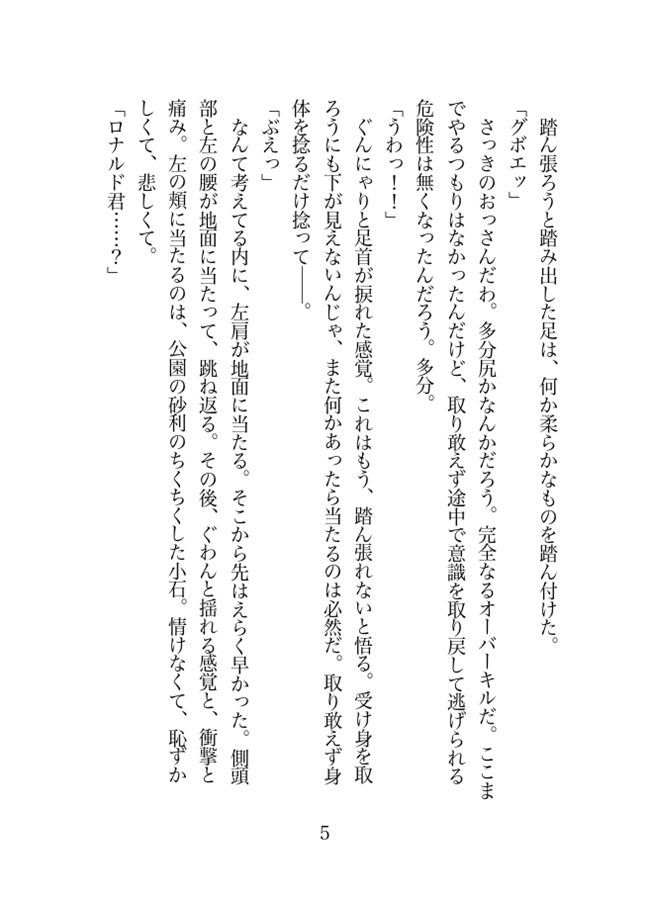 踏ん張ろうと踏み出した足は、何か柔らかなものを踏ん付けた。
「グボエッ」
さっきのおっさんだわ。多分尻かなんかだろう。完全なるオーバーキルだ。ここま
でやるつもりはなかったんだけど、取り敢えず途中で意識を取り戻して逃げられる
危険性は無くなったんだろう。多分。
「うわっ！！」
ぐんにゃりと足首が捩れた感覚。これはもう、踏ん張れないと悟る。受け身を取
ろうにも下が見えないんじゃ、また何かあったら当たるのは必然だ。取り敢えず身
体を捻るだけ捻って――。
「ぶえっ」
なんて考えてる内に、左肩が地面に当たる。そこから先はえらく早かった。側頭
部と左の腰が地面に当たって、跳ね返る。その後、ぐわんと揺れる感覚と、衝撃と
痛み。左の頬に当たるのは、公園の砂利のちくちくした小石。情けなくて、恥ずか
しくて、悲しくて。
「ロナルド君……？」
5